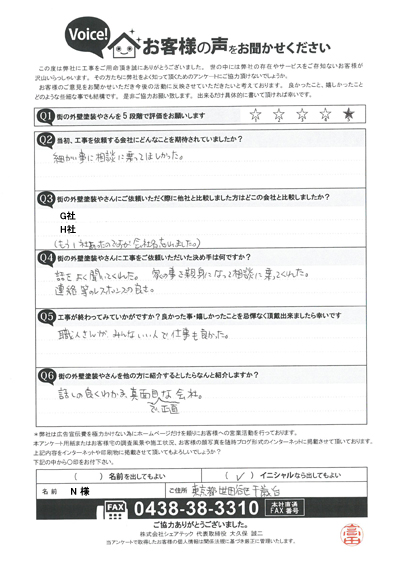 Voice! お客様の声をお聞かせください
この度は弊社に工事をご用命頂き誠にありがとうございました。世の中には弊社の存在やサービスをご存知ないお客様が
沢山いらっしゃいます。その方たちに弊社をよく知って頂くためのアンケートにご協力頂けないでしょうか。
お客様のご意見をお聞かせいただき今後の活動に反映させていただきたいと考えております。良かったこと、嬉しかったこと
どのような些細な事でも結構です。是非ご協力お願い致します。出来るだけ具体的に書いて頂ければ幸いです。
Q1 街の外壁塗装やさんを5段階で評価をお願いします ☆ ☆ ☆ ☆ ★
Q2 当初、工事を依頼する会社にどんなことを期待されていましたか？
細かい事に相談に乗ってほしかった。
Q3 街の外壁塗装やさんにご依頼いただく際に他社と比較しました方はどこの会社と比較しましたか？
G社
H社
(もう1社あったのですが会社名忘れました。)
Q4 街の外壁塗装やさんに工事をご依頼いただいた決め手は何ですか？
話をよく聞いてくれた。家の事を親身になって相談に乗ってくれた。
連絡等のレスポンスの良さ。
Q5 工事が終わってみていかがですか？良かった事・嬉しかったことを忌憚なく頂戴出来ましたら幸いです
職人さんが、みんないい人で仕事も良かった。
Q6 街の外壁塗装やさんを他の方に紹介するとしたらなんと紹介しますか？
話しの良くわかる、真面目な会社。
で、正直
＊弊社は広告宣伝費を極力かけない為にホームページだけを頼りにお客様への営業活動を行っております。
本アンケート用紙またはお客様宅の調査風景や施工状況、お客様の顔写真を随時ブログ形式のインターネットに掲載させて頂いております。
上記内容をインターネットや印刷物に掲載させて頂いてもよろしいでしょうか？
下記の中から〇印をお付け下さい。
( )名前を出してもよい (✓)イニシャルなら出してもよい
名前 N 様 ご住所 東京都世田谷区千歳台
FAX 0438-38-3310 本社直通 FAX番号
ご協力ありがとうございました。
株式会社シェアテック 代表取締役 大久保 誠二
当アンケートで取得したお客様の個人情報は関係法規に基づき厳正に管理いたします。